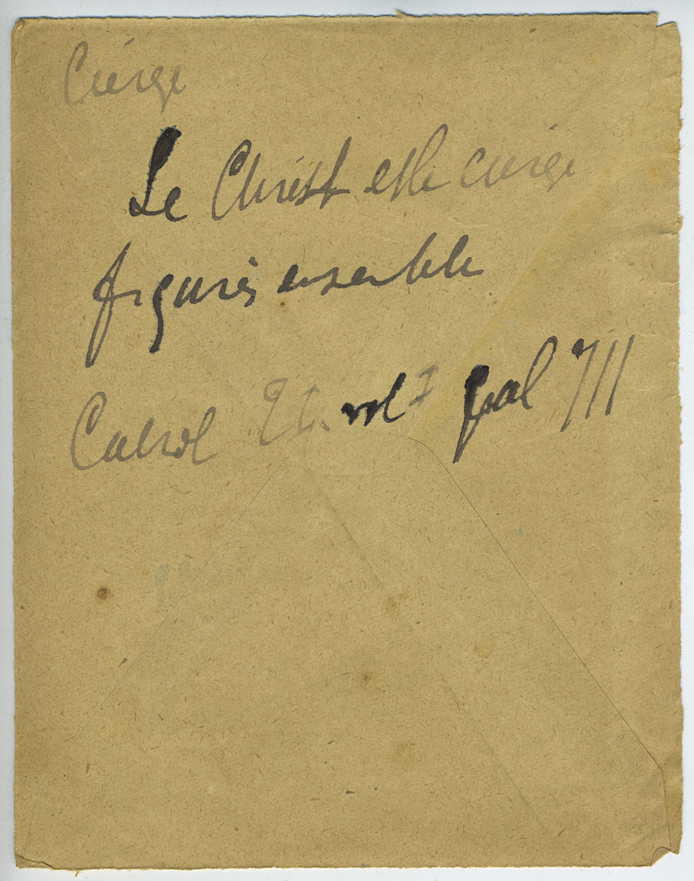 Cierge
Le Christ et le cierge
figurés ensemble
Cabrol T I. vol I pal 711